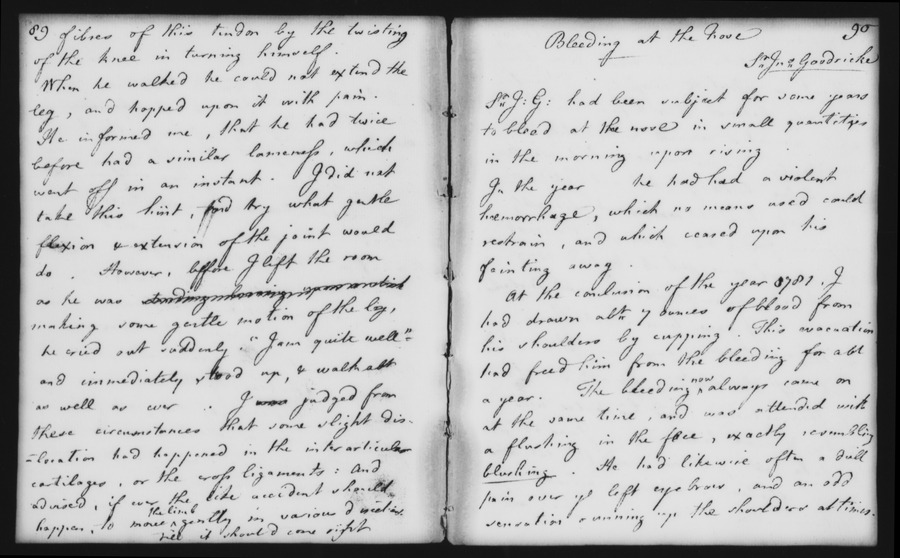 89 fibres of this tendon by the twisting
of the knee in turning himself.
When he walked he could not extend the
leg, and hopped upon it with pain.
He informed me, that he had twice
before had a similar lameness, which
went off in an instant. I did not
take this hint, and try what gentle
flexion & extension of the joint would
do. However, before I left the room
as he was
making some gentle motion of the leg,
he cried out suddenly, "I am quite well"=
and immediately stood up, & walk'd abt
as well as ever. I was judged from
these circumstances that some slight dis-
-location had happened in the interarticular
cartilages, or the cross ligaments: and
advised, if ever the like accident should
happen, to move the limb gently in various directions
till it should come right
90
Bleeding at the Nose
Sr. Jn. Goodricke
Sr. J: G: had been subject for some years
to bleed at the nose in small quantities
in the morning upon rising.
In the year he had had a violent
hæmorrhage, which no means used could
restrain, and which ceased upon his
fainting away.
At the conclusion of the year 1781, I
had drawn abt. 7 ounces of blood from
his shoulders by cupping. This evacuation
had freed him from the bleeding for abt
a year. The bleeding now always came on
at the same time, and was attended with
a flushing in the face, exactly resembling
blushing. He had likewise often a dull
pain over ye left eyebrow, and an odd
sensation running up the shoulders at times.